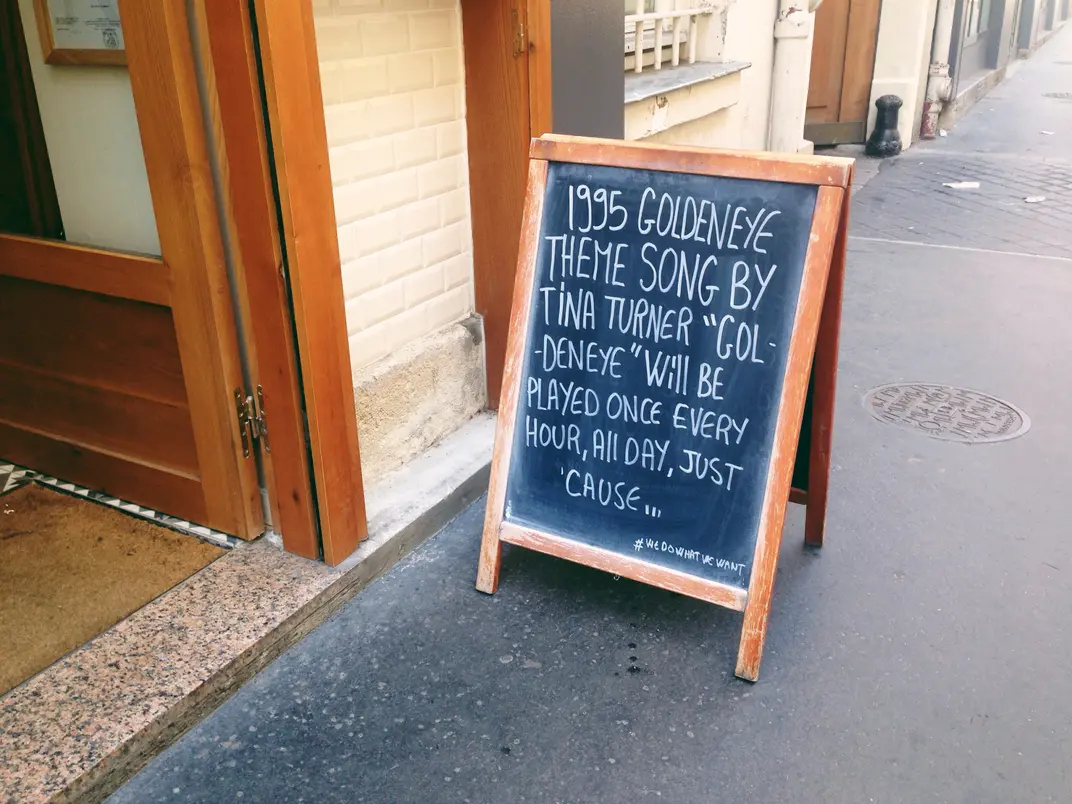 1995 GOLDENEYE
THEME SONG BY
TINA TURNER "GOL-
-DENEYE" Will BE
PLAYED ONCE EVERY
HOUR, All DAY, JUST
'CAUSE...
#WEDOWHATWEWANT